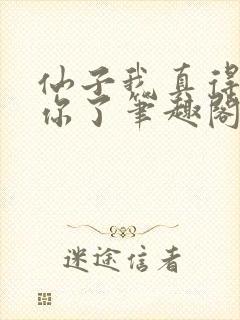 仙子我真得
你了笔趣阁
迷途信者